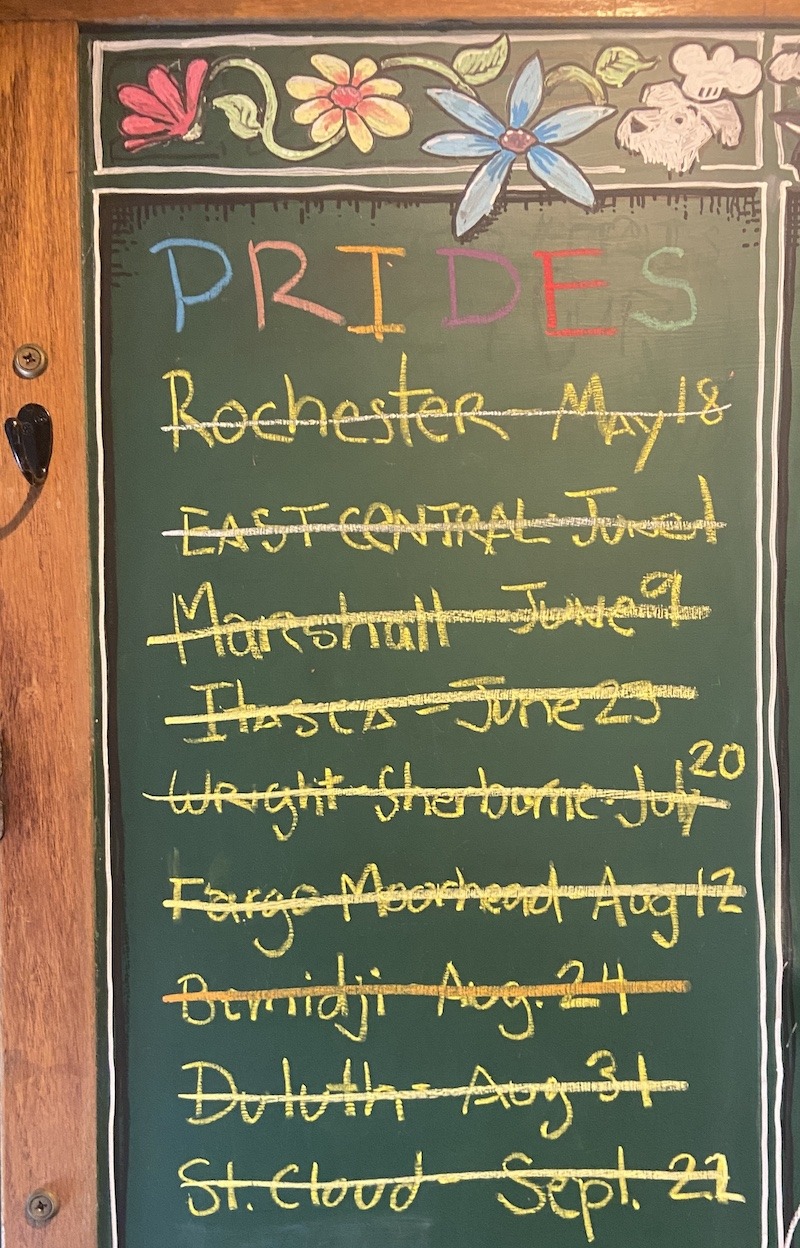 PRIDES
Rochester - May 18
EAST CENTRAL - June 1
Marshall - June 9
Itasca - June 23
Wright-Sherburne-July 20
Fargo Moorhead - Aug 12
Bimidji - Aug. 24
Duluth - Aug 31
St. Cloud - Sept. 21